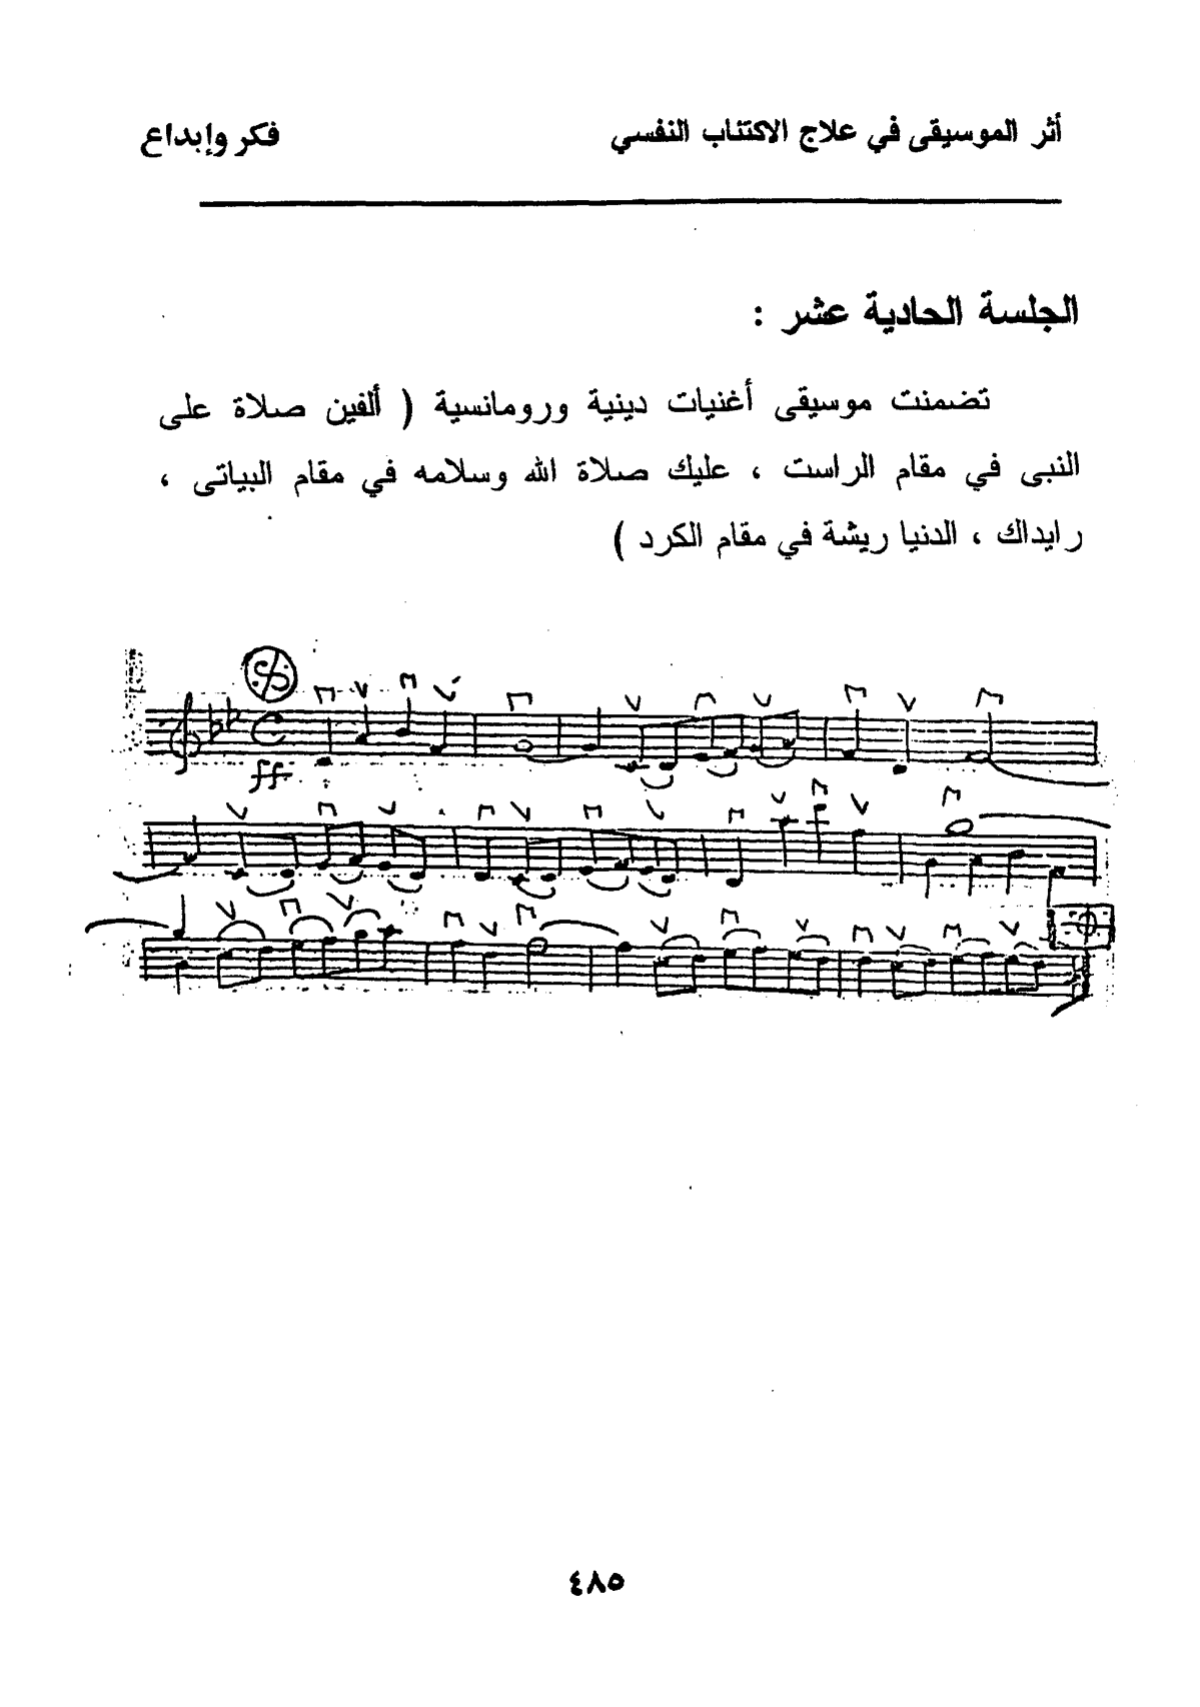 أثر الموسيقى في علاج الاكتئاب النفسي فكر وإبداع
الجلسة الحادية عشر :
تضمنت موسيقى أغنيات دينية ورومانسية ( ألفين صلاة على
النبى في مقام الراست ، عليك صلاة الله وسلامه في مقام البياتى ،
رايداك ، الدنيا ريشة في مقام الكرد )
ff
٤٨٥